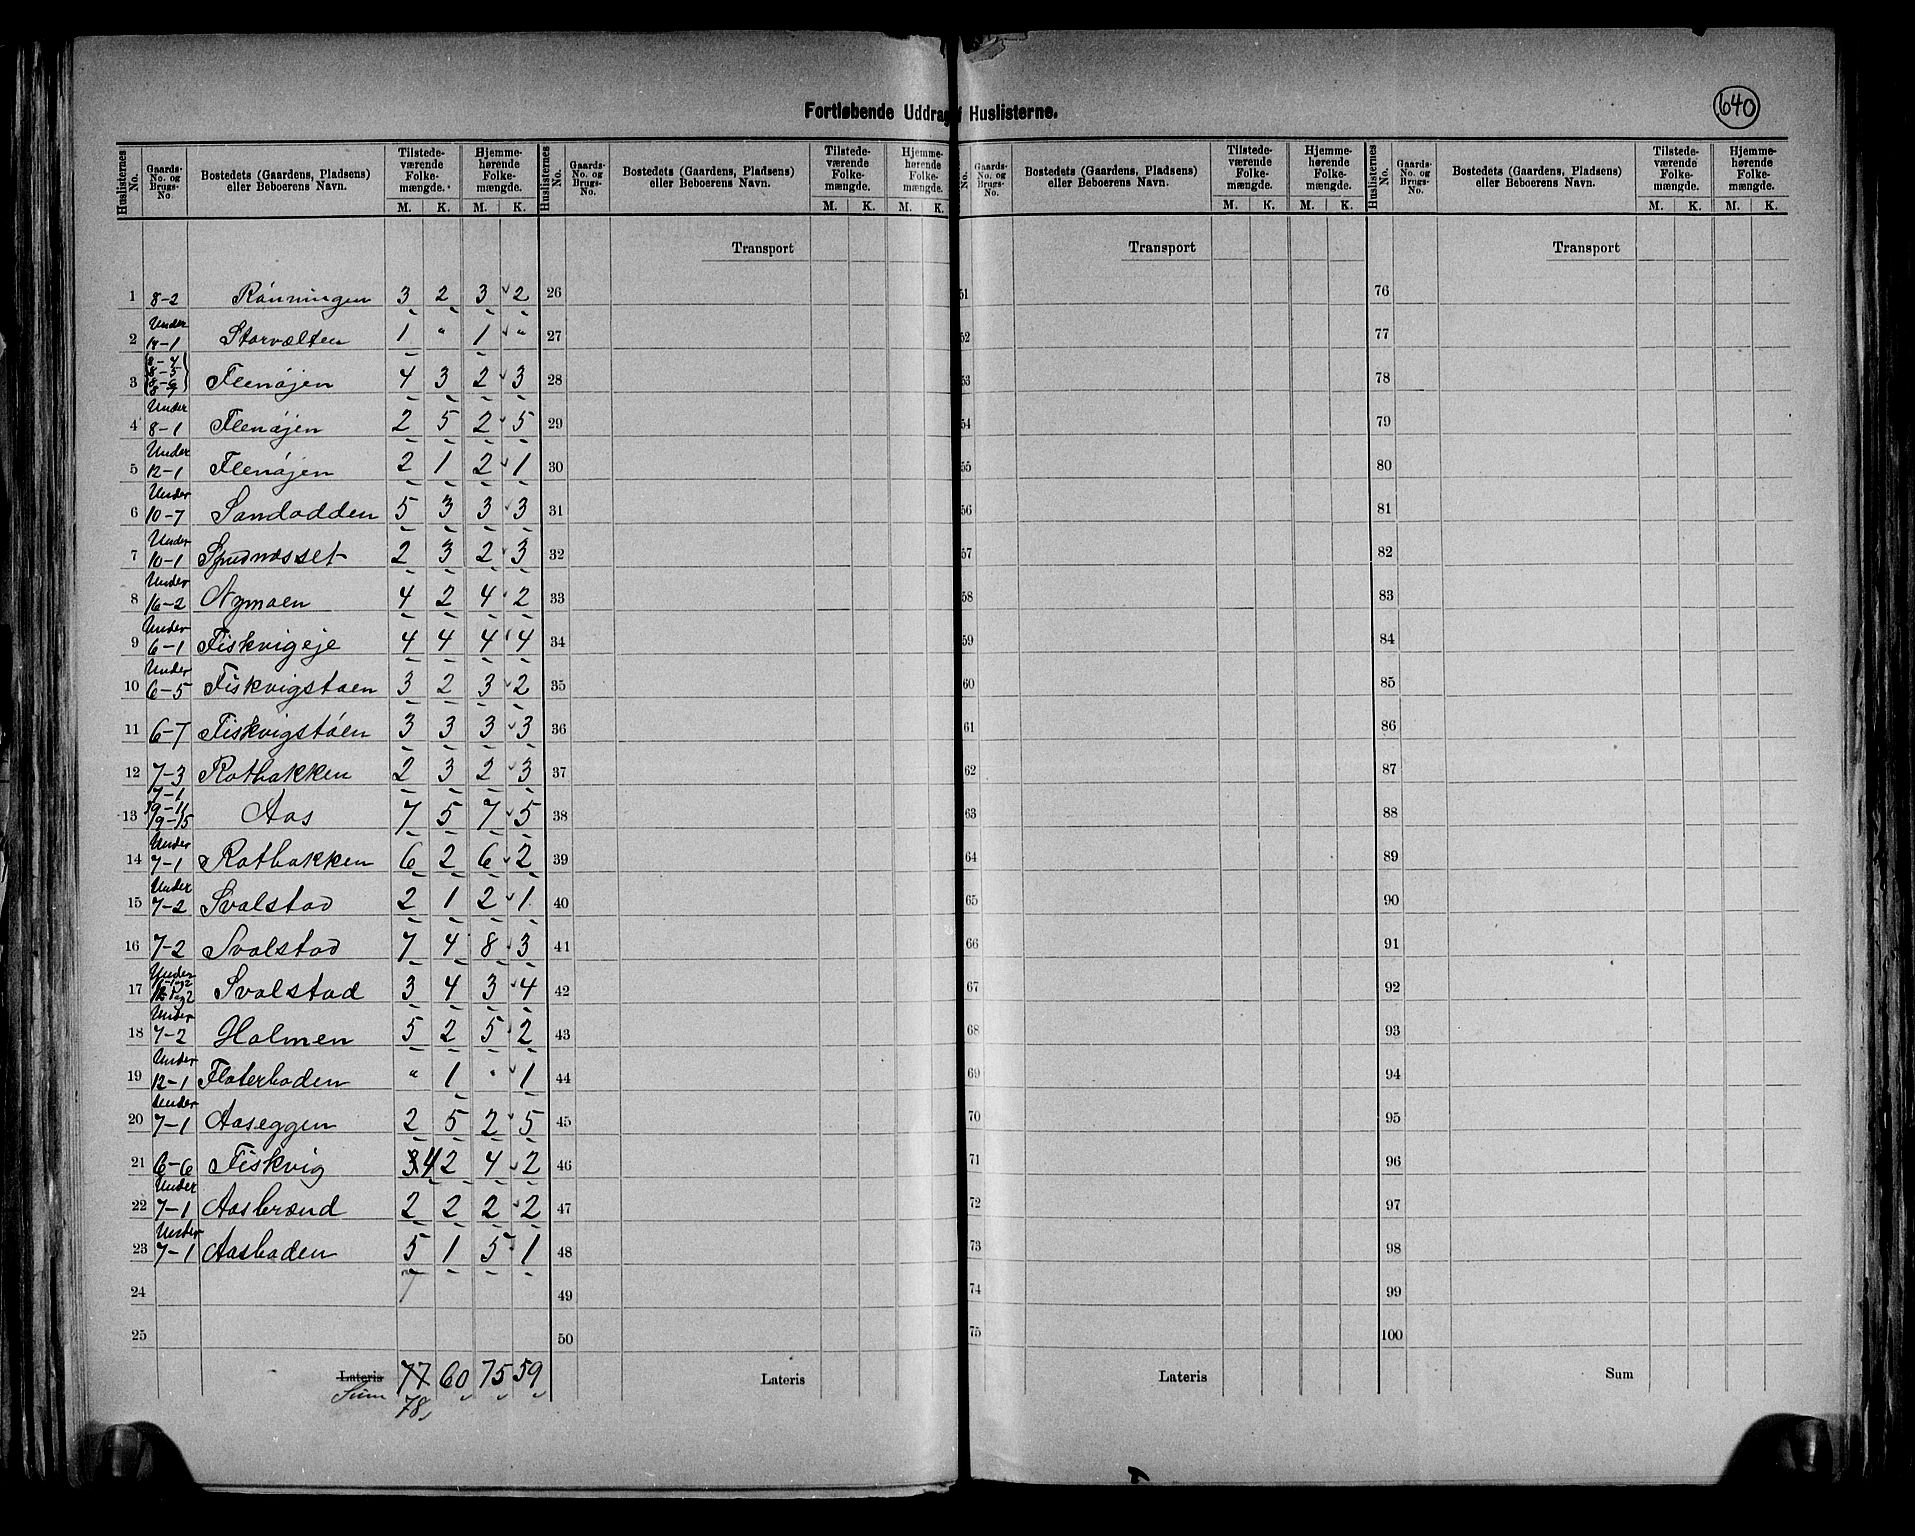 Fortløbende Uddrag Huslisterne.
640
Huslisternes No. | Gaards-No. og Brugs-No. | Bostedets (Gaardens, Pladsens) eller Beboerens Navn. | Tilstedeværende Folkemængde. M. K. | Hjemmehørende Folkemængde. M. K.
Huslisternes No. | Gaards-No. og Brugs-No. | Bostedets (Gaardens, Pladsens) eller Beboerens Navn. | Tilstedeværende Folkemængde. M. K. | Hjemmehørende Folkemængde. M. K.
No. | Gaards-No. og Brugs-No. | Bostedets (Gaardens, Pladsens) eller Beboerens Navn. | Tilstedeværende Folkemængde. M. K. | Hjemmehørende Folkemængde. M. K.
Huslisternes No. | Gaards-No. og Brugs-No. | Bostedets (Gaardens, Pladsens) eller Beboerens Navn. | Tilstedeværende Folkemængde. M. K. | Hjemmehørende Folkemængde. M. K.
Transport Transport Transport
1 8-2 Rønningen 3 2 3 2 26 51 76
2 Under 14-1 Storvælten 1 " 1 " 27 52 77
3 8-4 8-5 8-6 8-7 Flenøjen 4 3 2 3 28 53 78
4 Under 8-1 Flenøjen 2 5 2 5 29 54 79
5 Under 12-1 Flenøjen 2 1 2 1 30 55 80
6 Under 10-7 Sandodden 5 3 3 3 31 56 81
7 Under 10-1 2 3 2 3 32 57 82
8 Under 16-2 Nymoen 4 2 4 2 33 58 83
9 Under 6-1 Fiskvigeje 4 4 4 4 34 59 84
10 Under 6-5 Fiskvigstøen 3 2 3 2 35 60 85
11 6-7 Fiskvigstøen 3 3 3 3 36 61 86
12 7-3 Rotbakken 2 3 2 3 37 62 87
13 7-1 19-11 19-15 Aas 7 5 7 5 38 63 88
14 Under 7-1 Rotbakken 6 2 6 2 39 64 89
15 Under 7-2 Svalstad 2 1 2 1 40 65 90
16 7-2 Svalstad 7 4 8 3 41 66 91
17 Under Svalstad 3 4 3 4 42 67 92
18 Under 7-2 Holmen 5 2 5 2 43 68 93
19 Under 12-1 Floterboden " 1 " 1 44 69 94
20 Under 7-1 Aaseggen 2 5 2 5 45 70 95
21 6-6 Fiskvig 3 4 2 4 2 46 71 96
22 Under 7-1 Aasbrænd 2 2 2 2 47 72 97
23 Under 7-1 Aasboden 5 1 5 1 48 73 98
24 49 74 99
25 50 75 100
Lateris 77 60 75 59 Lateris Lateris Sum
Sum 78